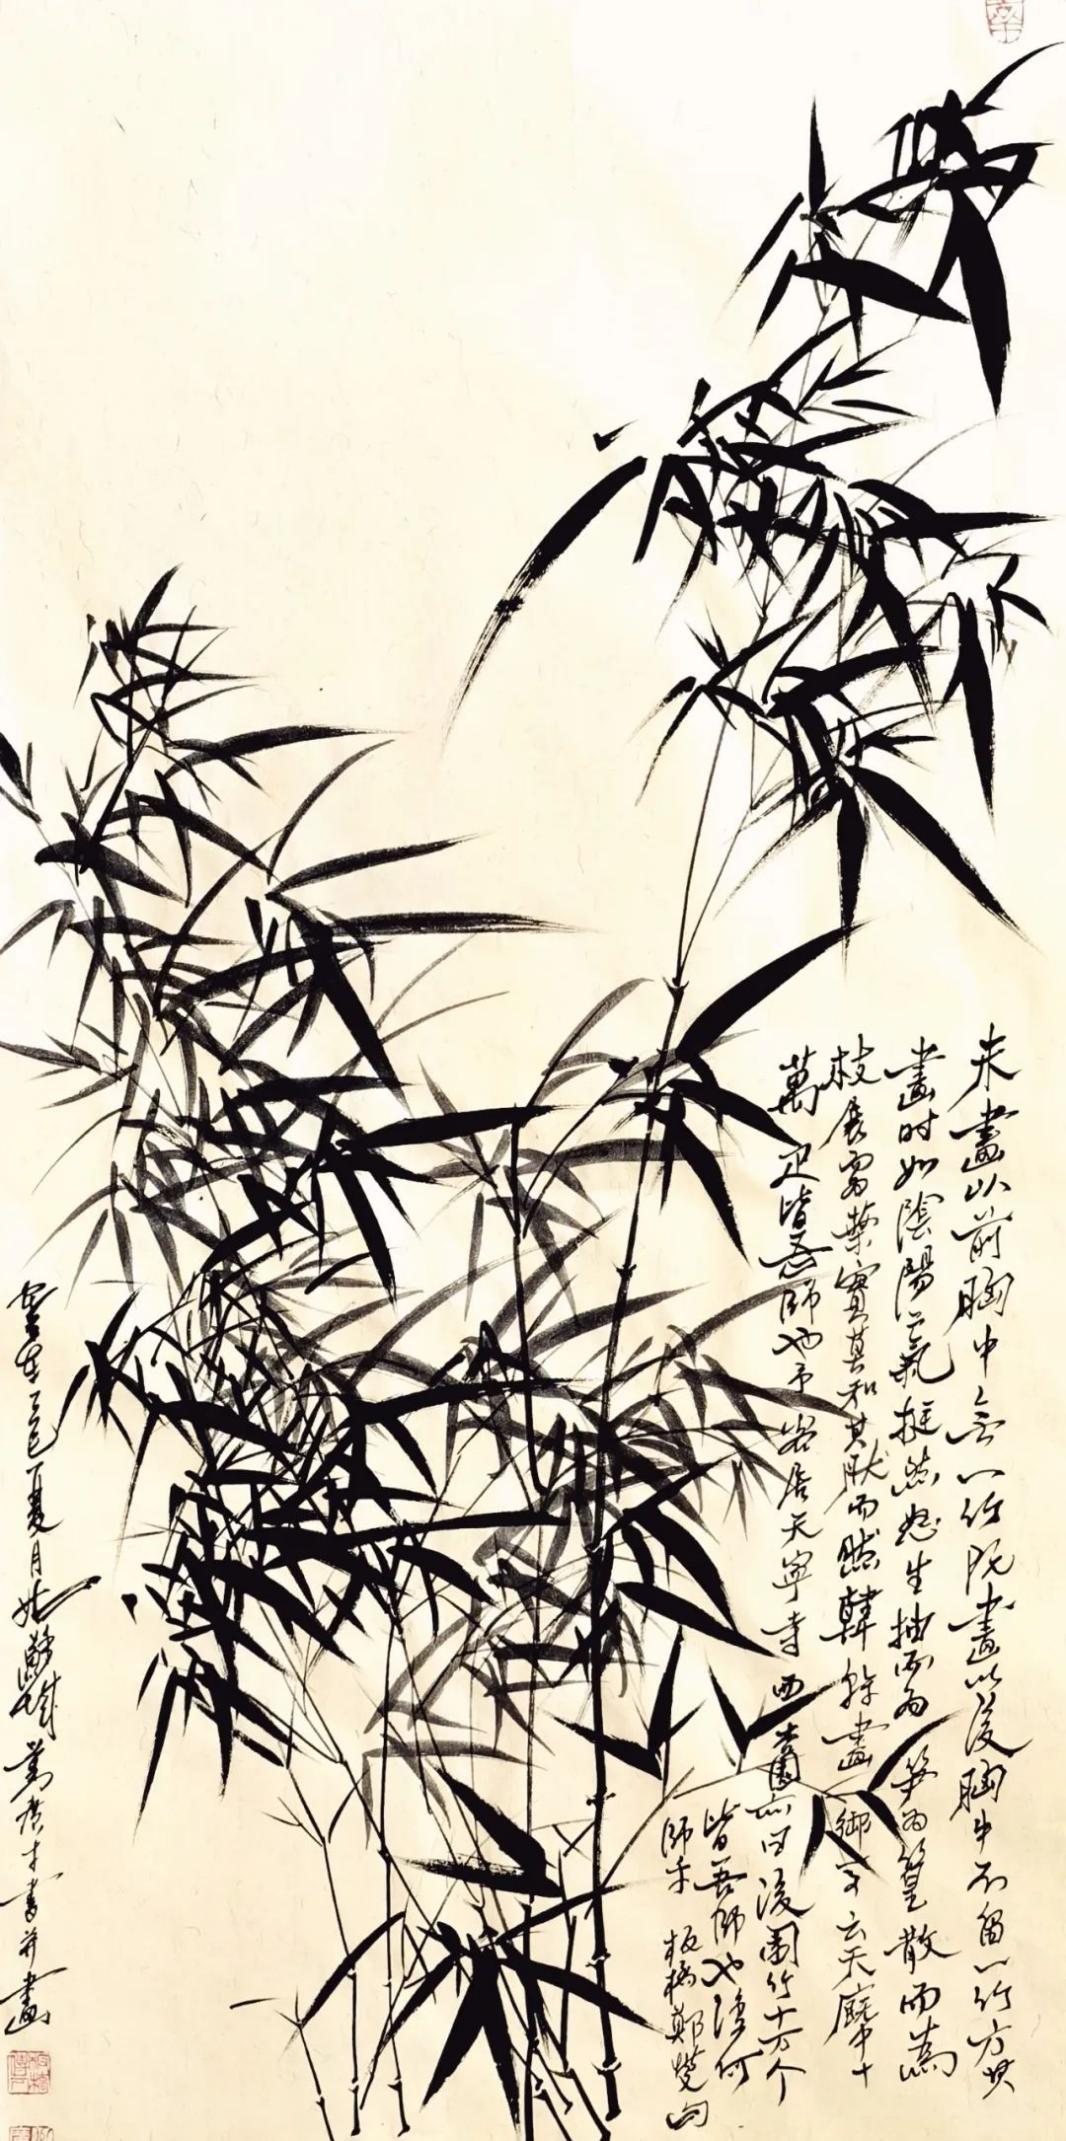 未畫以前胸中無一竹既畫以後胸中不留一竹方其
畫時如陰陽二氣挺然怒生抽而為筍為篁散而為
枝展而為葉實莫知其然而然韓幹畫御馬云天廄中十
萬匹皆吾師也予客居天寧寺西園亦曰後園竹十万个
皆吾師也復何
師乎 板橋鄭燮句
歲在乙巳夏月於 城 廣才書并畫